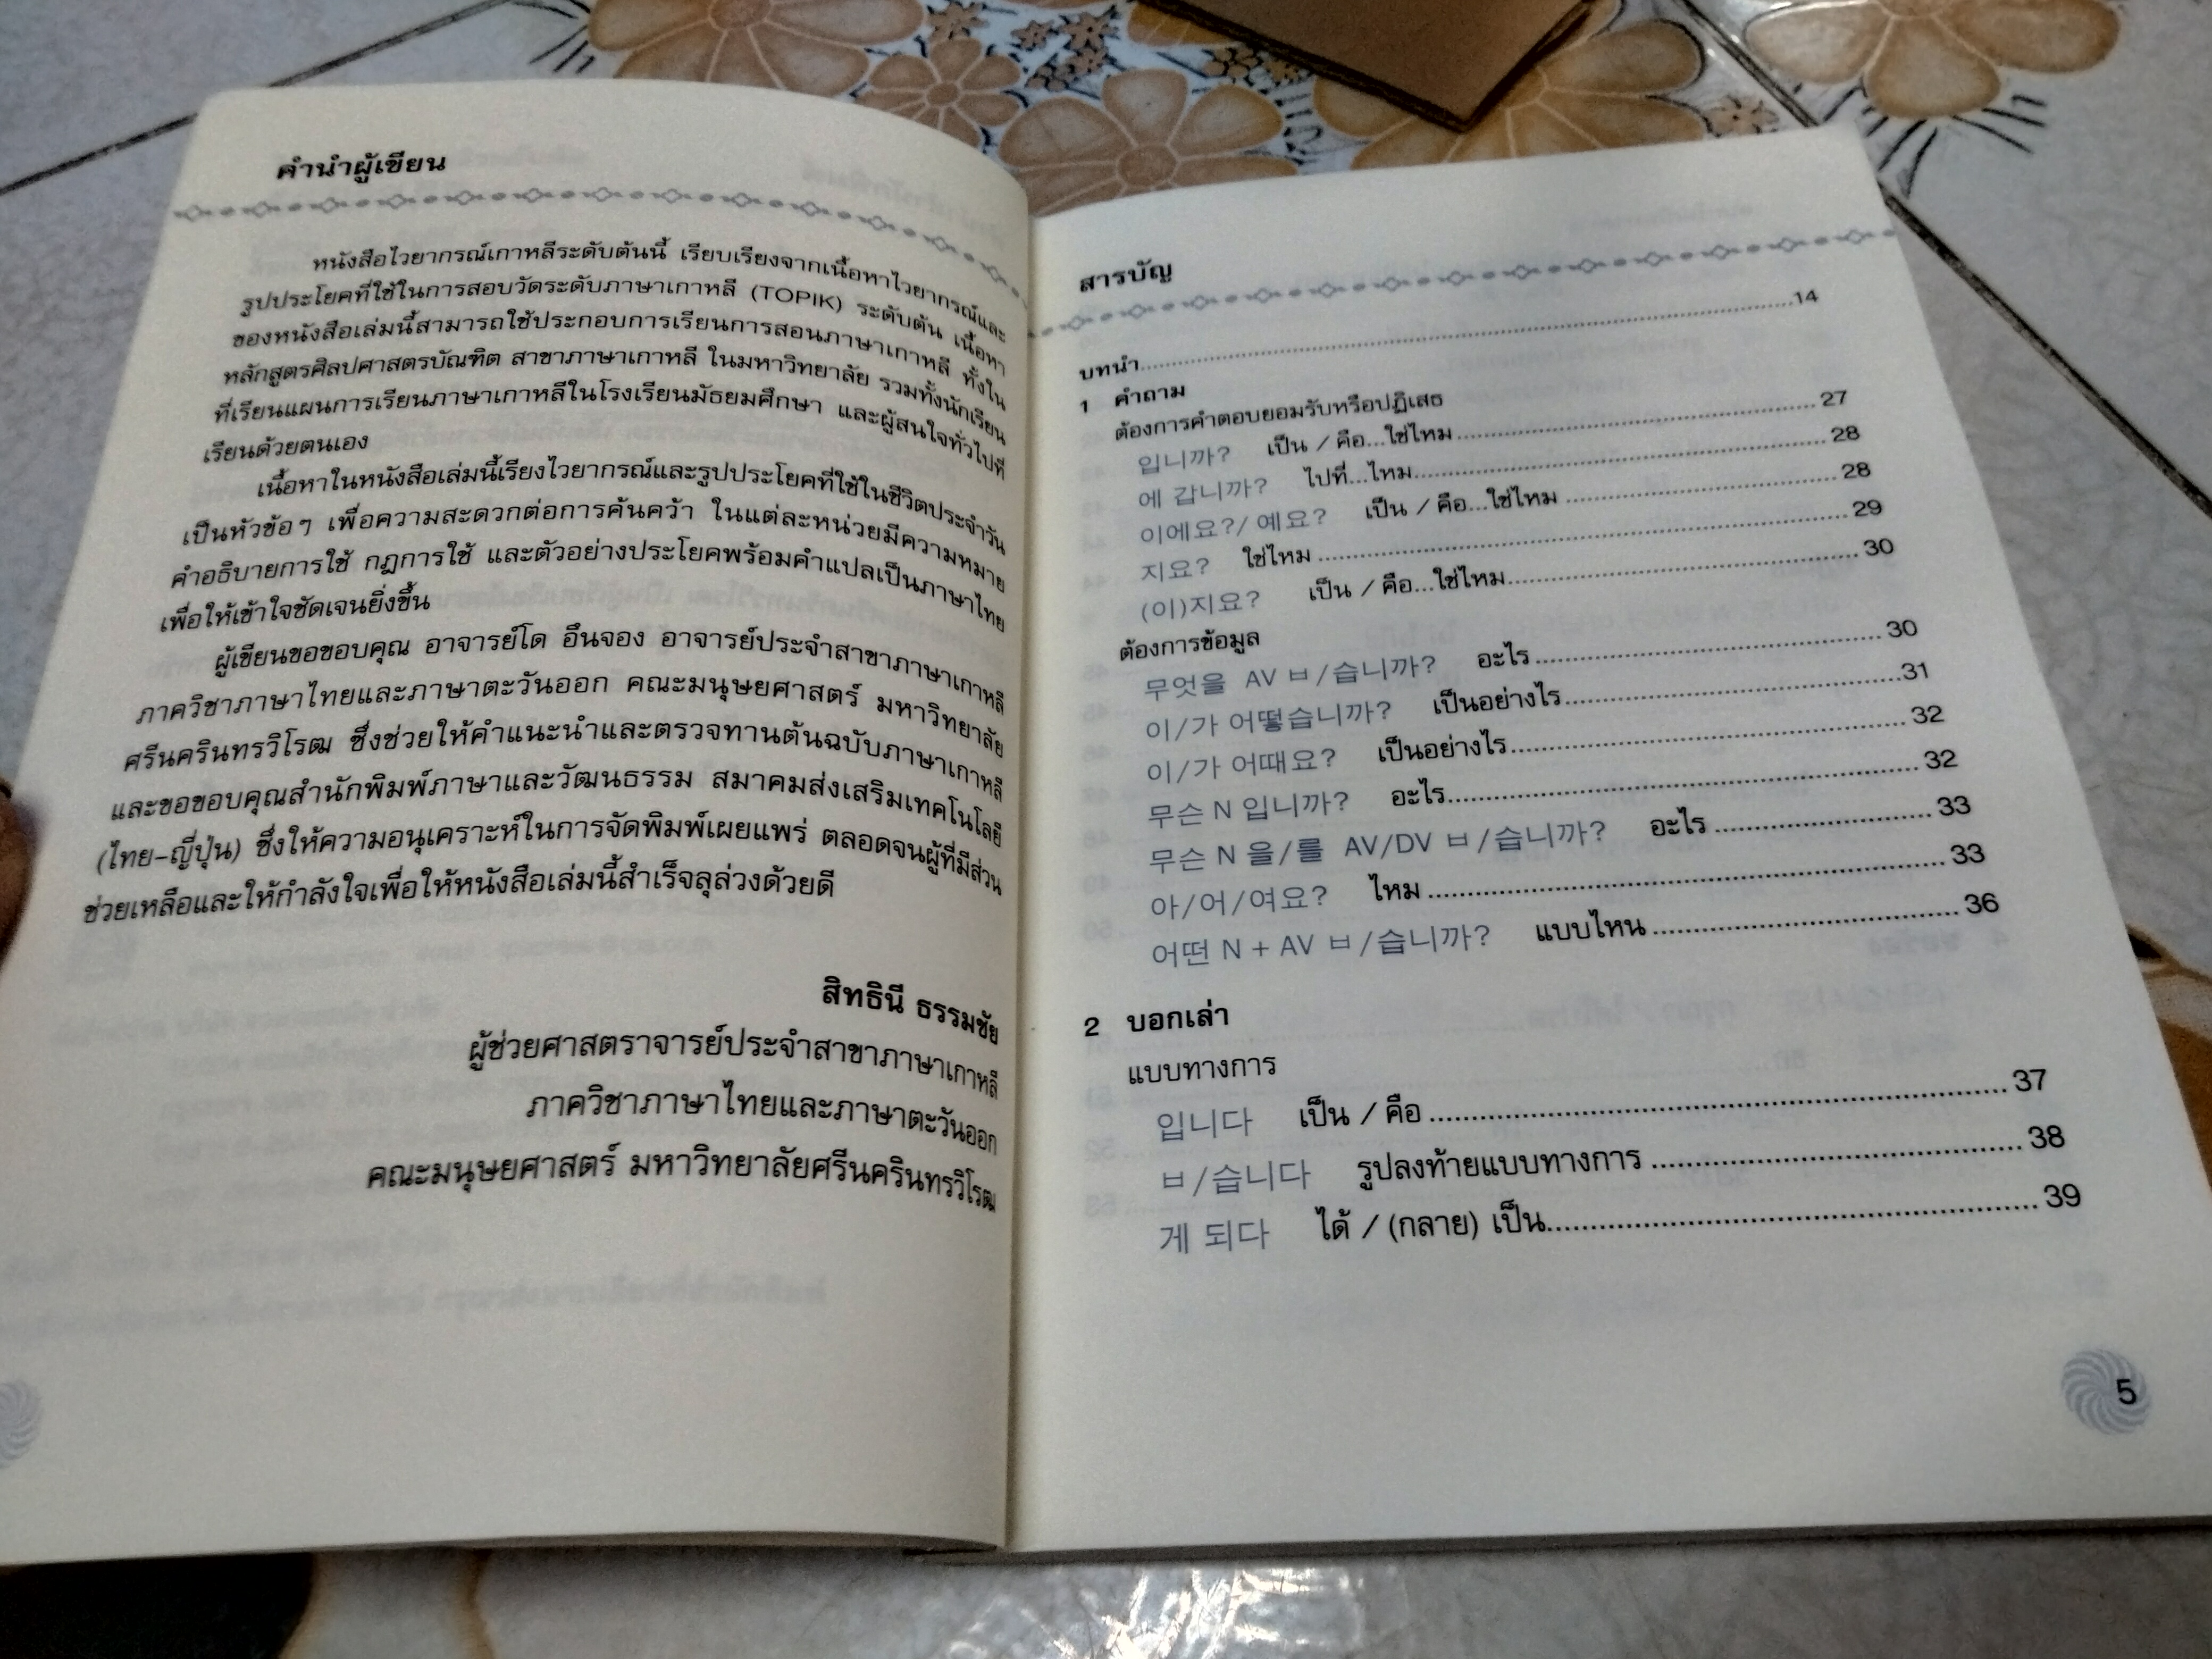 คำนำผู้เขียน
หนังสือไวยากรณ์เกาหลีระดับต้นนี้ เรียบเรียงจากเนื้อหาไวยากรณ์และ
รูปประโยคที่ใช้ในการสอบวัดระดับภาษาเกาหลี (TOPIK) ระดับต้น เนื้อหา
ของหนังสือเล่มนี้สามารถใช้ประกอบการเรียนการสอนภาษาเกาหลี ทั้งใน
หลักสูตรศิลปศาสตรบัณฑิต สาขาภาษาเกาหลี ในมหาวิทยาลัย รวมทั้งนักเรียน
ที่เรียนแผนการเรียนภาษาเกาหลีในโรงเรียนมัธยมศึกษา และผู้สนใจทั่วไปที่
เรียนด้วยตนเอง
เนื้อหาในหนังสือเล่มนี้เรียงไวยากรณ์และรูปประโยคที่ใช้ในชีวิตประจำวัน
เป็นหัวข้อๆ เพื่อความสะดวกต่อการค้นคว้า ในแต่ละหน่วยมีความหมาย
คำอธิบายการใช้ กฎการใช้ และตัวอย่างประโยคพร้อมคำแปลเป็นภาษาไทย
เพื่อให้เข้าใจชัดเจนยิ่งขึ้น
ผู้เขียนขอขอบคุณ อาจารย์โด อึนจอง อาจารย์ประจำสาขาภาษาเกาหลี
ภาควิชาภาษาไทยและภาษาตะวันออก คณะมนุษยศาสตร์ มหาวิทยาลัย
ศรีนครินทรวิโรฒ ซึ่งช่วยให้คำแนะนำและตรวจทานต้นฉบับภาษาเกาหลี
และขอขอบคุณสำนักพิมพ์ภาษาและวัฒนธรรม สมาคมส่งเสริมเทคโนโลยี
(ไทย-ญี่ปุ่น) ซึ่งให้ความอนุเคราะห์ในการจัดพิมพ์เผยแพร่ ตลอดจนผู้ที่มีส่วน
ช่วยเหลือและให้กำลังใจเพื่อให้หนังสือเล่มนี้สำเร็จลุล่วงด้วยดี
สิทธินี ธรรมชัย
ผู้ช่วยศาสตราจารย์ประจำสาขาภาษาเกาหลี
ภาควิชาภาษาไทยและภาษาตะวันออก
คณะมนุษยศาสตร์ มหาวิทยาลัยศรีนครินทรวิโรฒ
สารบัญ
บทนำ..............................14
1 คำถาม
ต้องการคำตอบยอมรับหรือปฏิเสธ
입니까? เป็น / คือ...ใช่ไหม..............................27
에 갑니까? ไปที่...ไหม..............................28
이에요?/ 예요? เป็น / คือ...ใช่ไหม..............................28
지요? ใช่ไหม..............................29
(이)지요? เป็น / คือ...ใช่ไหม..............................30
ต้องการข้อมูล
무엇을 AV ㅂ/습니까? อะไร..............................30
이/가 어떻습니까? เป็นอย่างไร..............................31
이/가 어때요? เป็นอย่างไร..............................32
무슨 N 입니까? อะไร..............................32
무슨 N 을/를 AV/DV ㅂ/습니까? อะไร..............................33
아/어/여요? ไหม..............................33
어떤 N + AV ㅂ/습니까? แบบไหน..............................36
2 บอกเล่า
แบบทางการ
입니다 เป็น / คือ..............................37
ㅂ/습니다 รูปลงท้ายแบบทางการ..............................38
게 되다 ได้ / (กลาย) เป็น..............................39
5